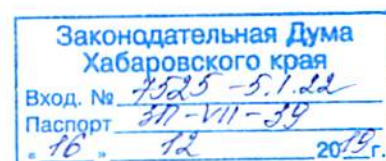 Законодательная Дума
Хабаровского края
Вход. № 7525-5.1.22
Паспорт ЗП-VII-39
" 16 " 12 2019 г.